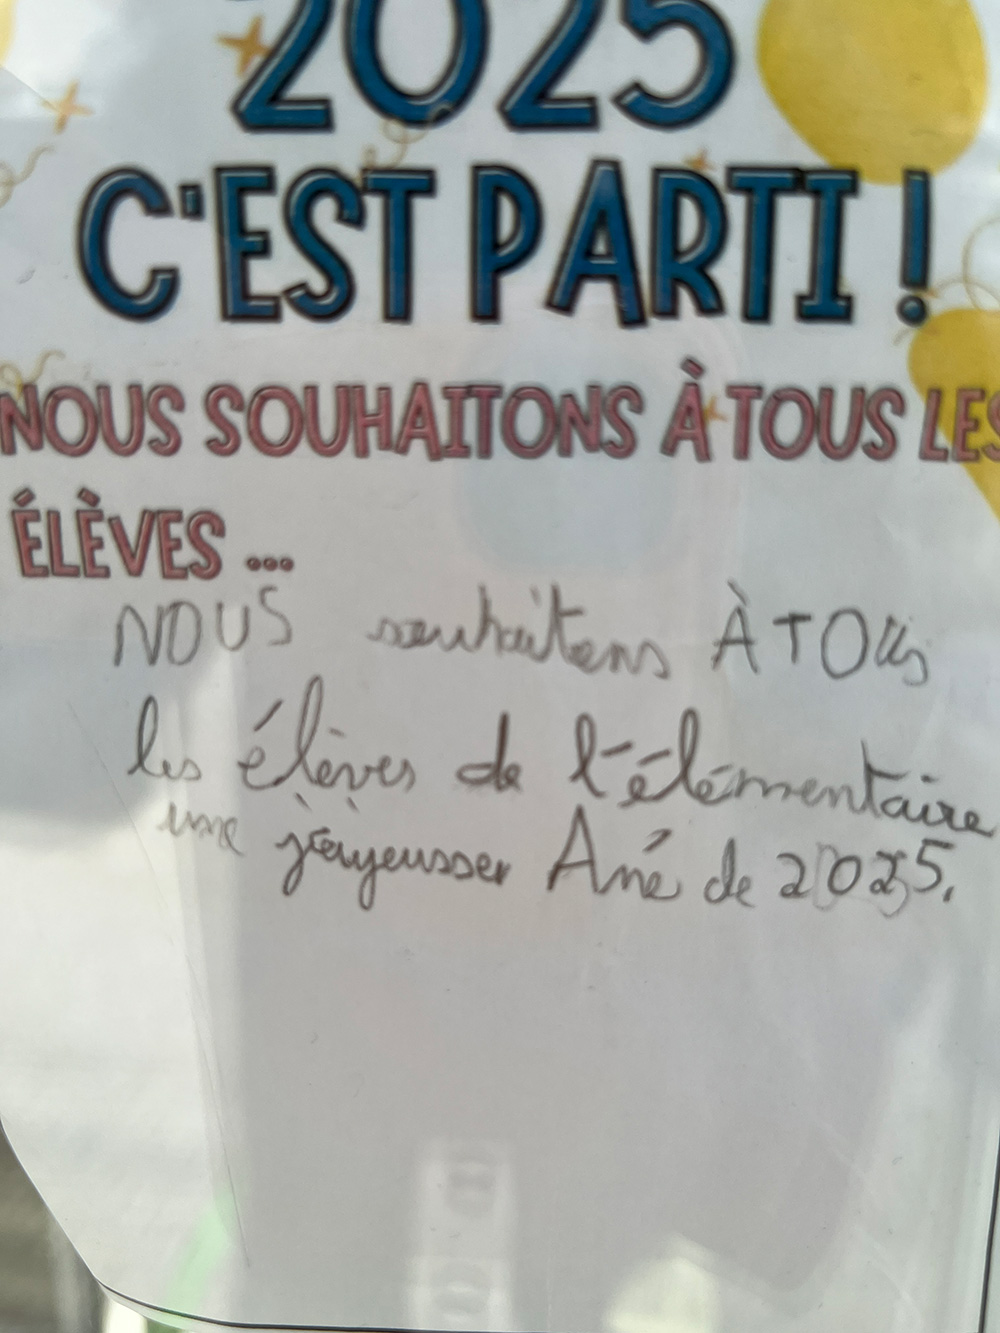 2025
C'EST PARTI !
NOUS SOUHAITONS À TOUS LES
ÉLÈVES ...
NOUS souhaitons À TOUS
les élèves de l'élémentaire
une jœyeusser Ané de 2025.